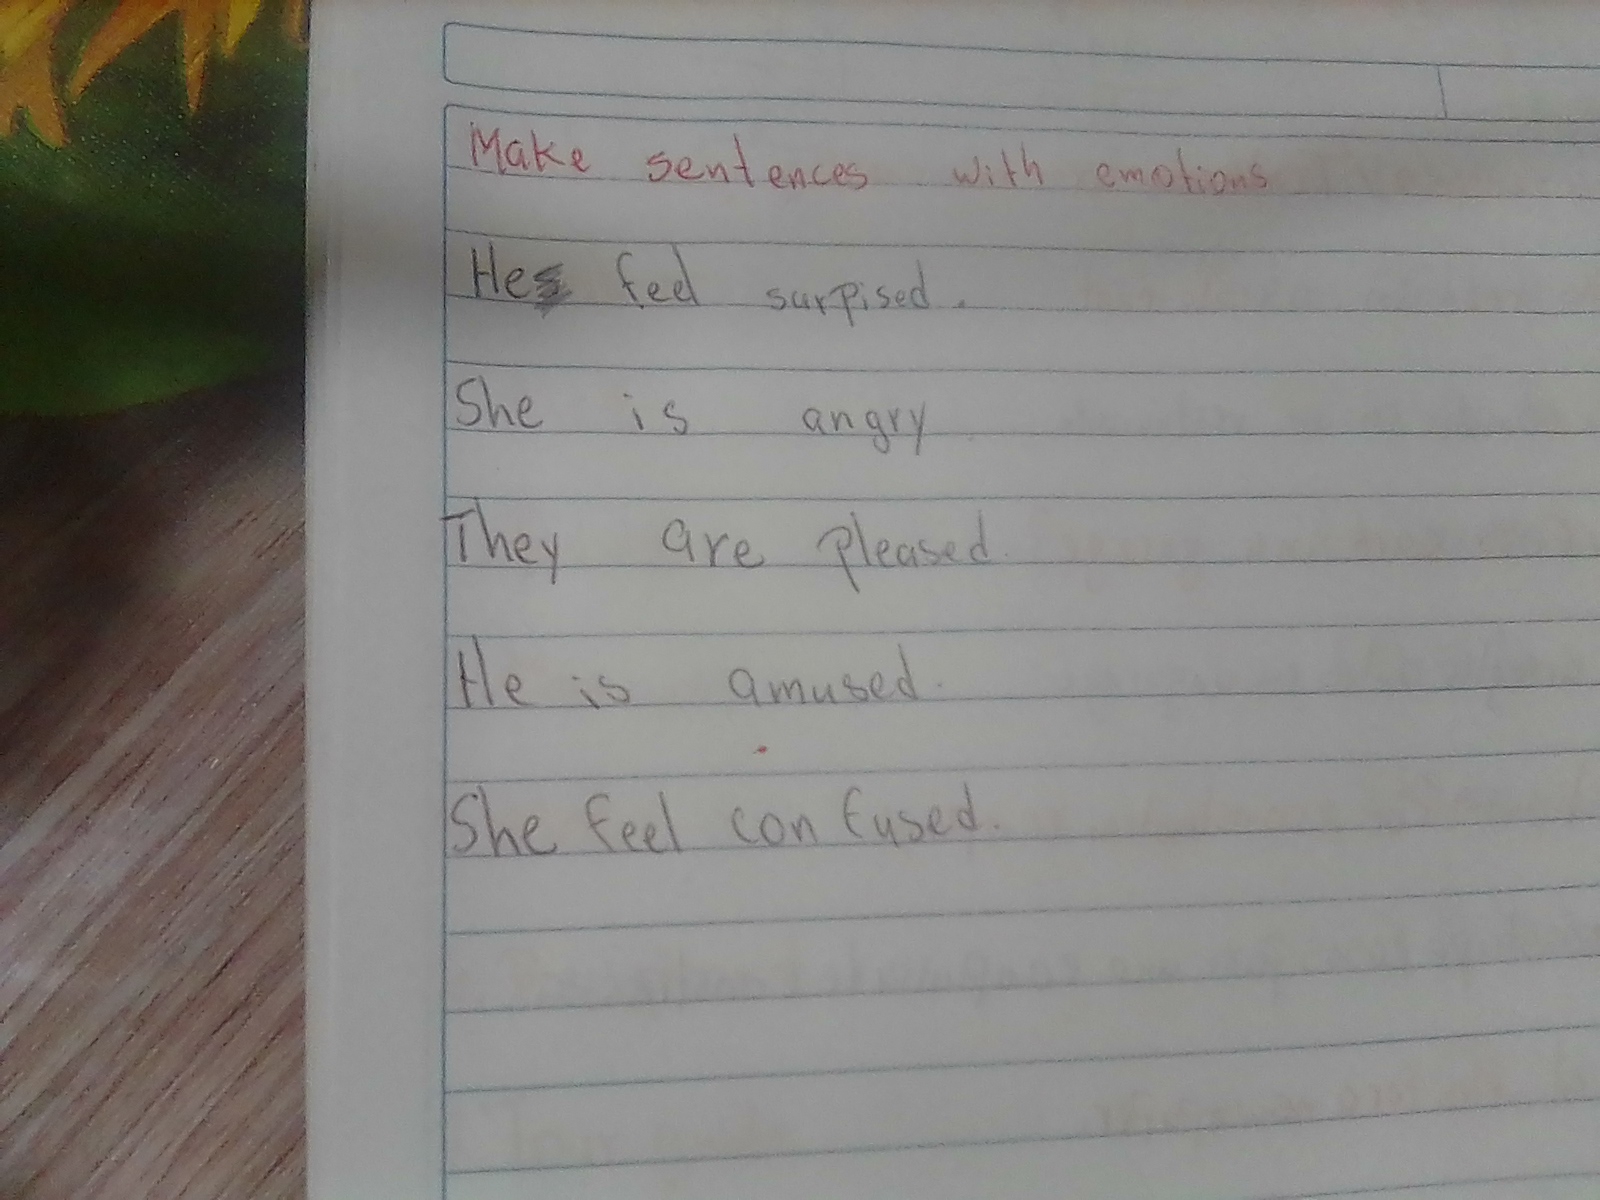 Make sentences with emotions
He feel surpised.
She is angry
They are pleased.
He is amused.
She feel confused.